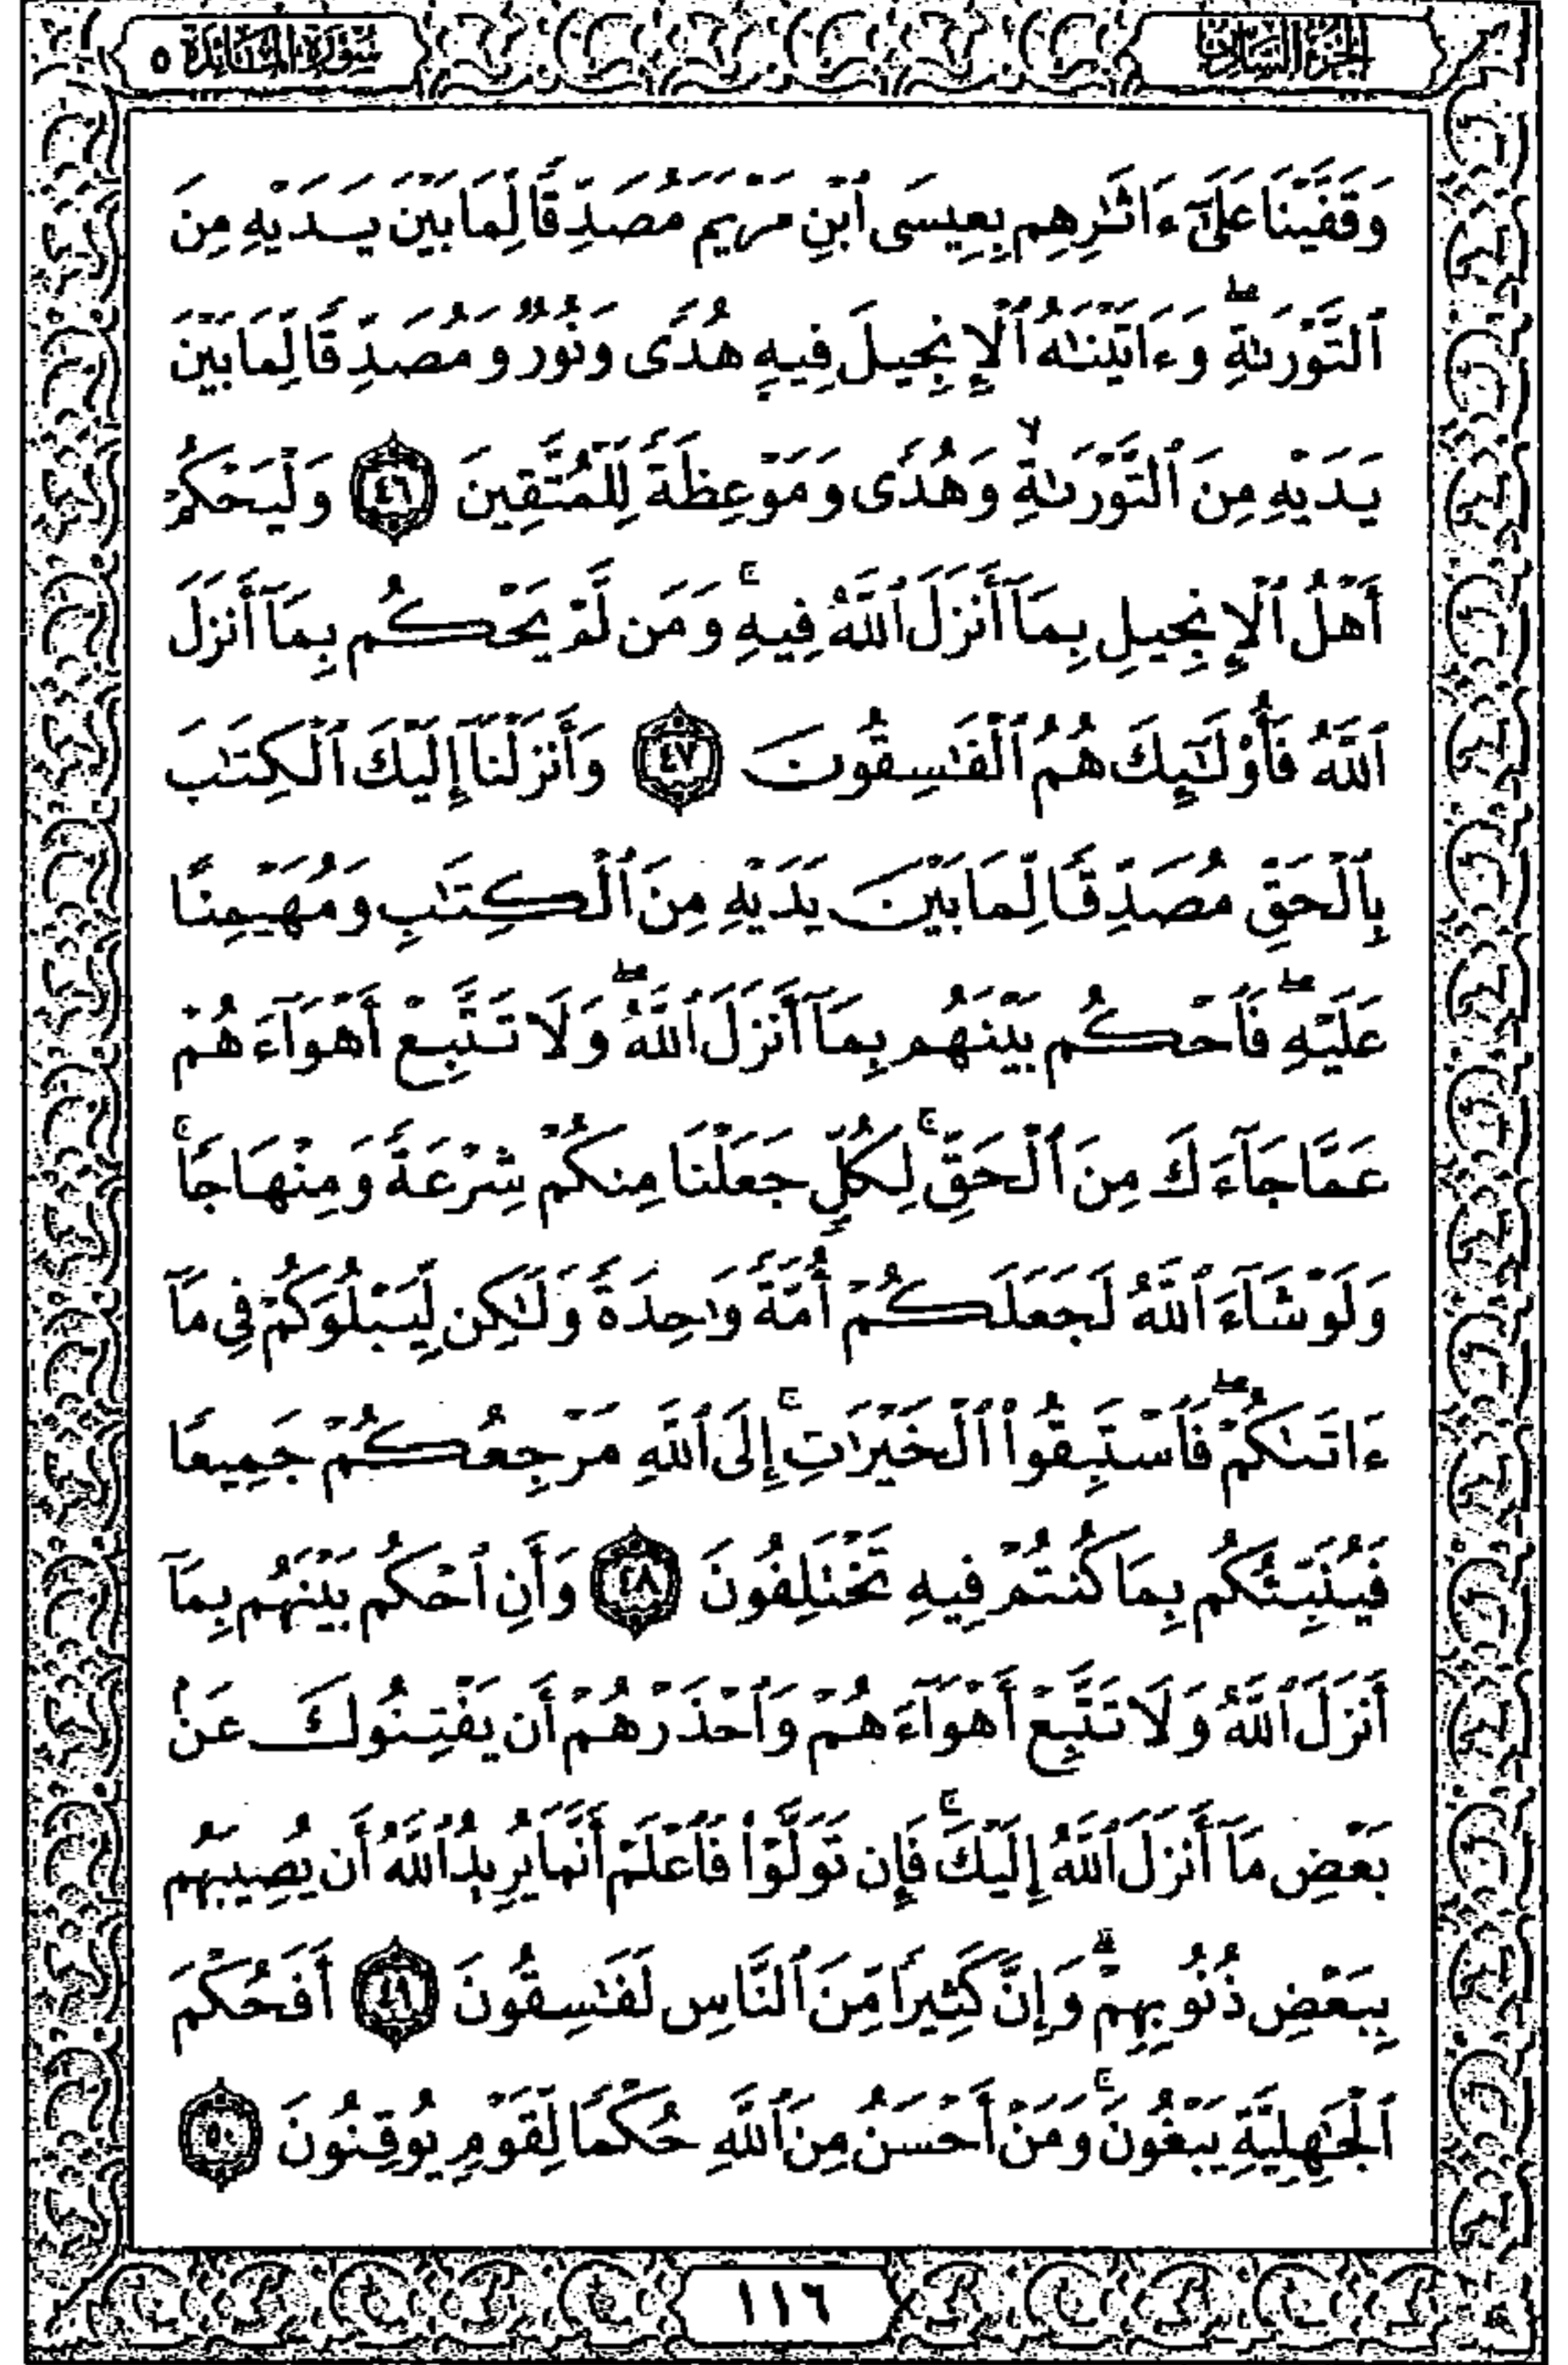 الجزء السادس
سورة المائدة ٥
وَقَفَّيْنَا عَلَىٰٓ ءَاثَـٰرِهِم بِعِيسَى ٱبْنِ مَرْيَمَ مُصَدِّقًا لِّمَا بَيْنَ يَدَيْهِ مِنَ
ٱلتَّوْرَىٰةِ ۖ وَءَاتَيْنَـٰهُ ٱلْإِنجِيلَ فِيهِ هُدًى وَنُورٌ وَمُصَدِّقًا لِّمَا بَيْنَ
يَدَيْهِ مِنَ ٱلتَّوْرَىٰةِ ۙ وَهُدًى وَمَوْعِظَةً لِّلْمُتَّقِينَ ٤٦ وَلْيَحْكُمْ
أَهْلُ ٱلْإِنجِيلِ بِمَآ أَنزَلَ ٱللَّهُ فِيهِ ۚ وَمَن لَّمْ يَحْكُم بِمَآ أَنزَلَ
ٱللَّهُ فَأُو۟لَـٰٓئِكَ هُمُ ٱلْفَـٰسِقُونَ ٤٧ وَأَنزَلْنَآ إِلَيْكَ ٱلْكِتَـٰبَ
بِٱلْحَقِّ مُصَدِّقًا لِّمَا بَيْنَ يَدَيْهِ مِنَ ٱلْكِتَـٰبِ وَمُهَيْمِنًا
عَلَيْهِ ۖ فَٱحْكُم بَيْنَهُم بِمَآ أَنزَلَ ٱللَّهُ ۖ وَلَا تَتَّبِعْ أَهْوَآءَهُمْ
عَمَّا جَآءَكَ مِنَ ٱلْحَقِّ ۚ لِكُلٍّ جَعَلْنَا مِنكُمْ شِرْعَةً وَمِنْهَاجًا ۚ
وَلَوْ شَآءَ ٱللَّهُ لَجَعَلَكُمْ أُمَّةً وَٰحِدَةً وَلَـٰكِن لِّيَبْلُوَكُمْ فِى مَآ
ءَاتَىٰكُمْ ۖ فَٱسْتَبِقُوا۟ ٱلْخَيْرَٰتِ ۚ إِلَى ٱللَّهِ مَرْجِعُكُمْ جَمِيعًا
فَيُنَبِّئُكُم بِمَا كُنتُمْ فِيهِ تَخْتَلِفُونَ ٤٨ وَأَنِ ٱحْكُم بَيْنَهُم بِمَآ
أَنزَلَ ٱللَّهُ وَلَا تَتَّبِعْ أَهْوَآءَهُمْ وَٱحْذَرْهُمْ أَن يَفْتِنُوكَ عَنۢ
بَعْضِ مَآ أَنزَلَ ٱللَّهُ إِلَيْكَ ۚ فَإِن تَوَلَّوْا۟ فَٱعْلَمْ أَنَّمَا يُرِيدُ ٱللَّهُ أَن يُصِيبَهُم
بِبَعْضِ ذُنُوبِهِمْ ۗ وَإِنَّ كَثِيرًا مِّنَ ٱلنَّاسِ لَفَـٰسِقُونَ ٤٩ أَفَحُكْمَ
ٱلْجَـٰهِلِيَّةِ يَبْغُونَ ۚ وَمَنْ أَحْسَنُ مِنَ ٱللَّهِ حُكْمًا لِّقَوْمٍ يُوقِنُونَ ٥٠
١١٦